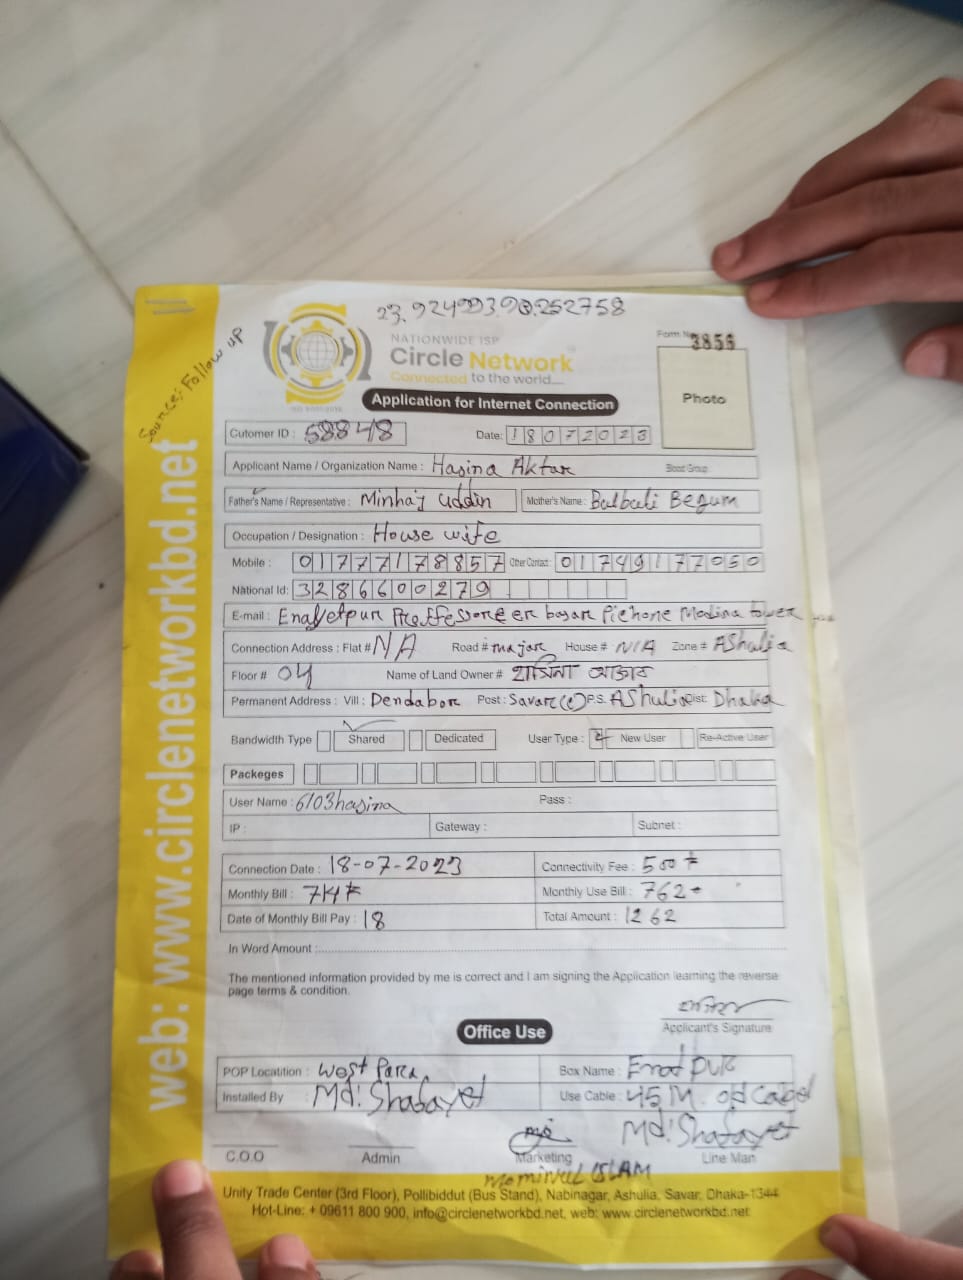 23.9249939
NATIONWIDE ISP
Circle Network
Connected to the world....
Form No 3856
Photo
Source: Follow up
web: www.circlenetworkbd.net
Application for Internet Connection
Cutomer ID : 58848 Date: 18072023
Applicant Name / Organization Name : Hasina Aktar Blood Group
Father's Name / Representative : Minhaj Uddin Mother's Name : Bulbuli Begum
Occupation / Designation : House wife
Mobile : 01777178857 Other Contact : 01749177050
National Id: 3286600279
E-mail : Enayetpur Medina tower
Connection Address : Flat # N/A Road # major House # N/A Zone # AShulia
Floor # 04 Name of Land Owner #
Permanent Address : Vill : Dendabor Post : Savar P.S. AShulia Dist: Dhaka
Bandwidth Type Shared Dedicated User Type : New User Re-Active User
Packeges
User Name : 6103hasina Pass :
IP : Gateway : Subnet :
Connection Date : 18-07-2023 Connectivity Fee : 500
Monthly Bill : Monthly Use Bill : 762
Date of Monthly Bill Pay : 18 Total Amount : 1262
In Word Amount :
The mentioned information provided by me is correct and I am signing the Application learning the reverse
page terms & condition.
Applicant's Signature
Office Use
POP Locatition : West Para Box Name :
Installed By : Md: Shafayet Use Cable : 45 M. old Cabel
Md: Shafayet
C.O.O Admin Marketing Line Man
Mominul ISLAM
Unity Trade Center (3rd Floor), Pollibiddut (Bus Stand), Nabinagar, Ashulia, Savar, Dhaka-1344
Hot-Line: + 09611 800 900, info@circlenetworkbd.net, web: www.circlenetworkbd.net